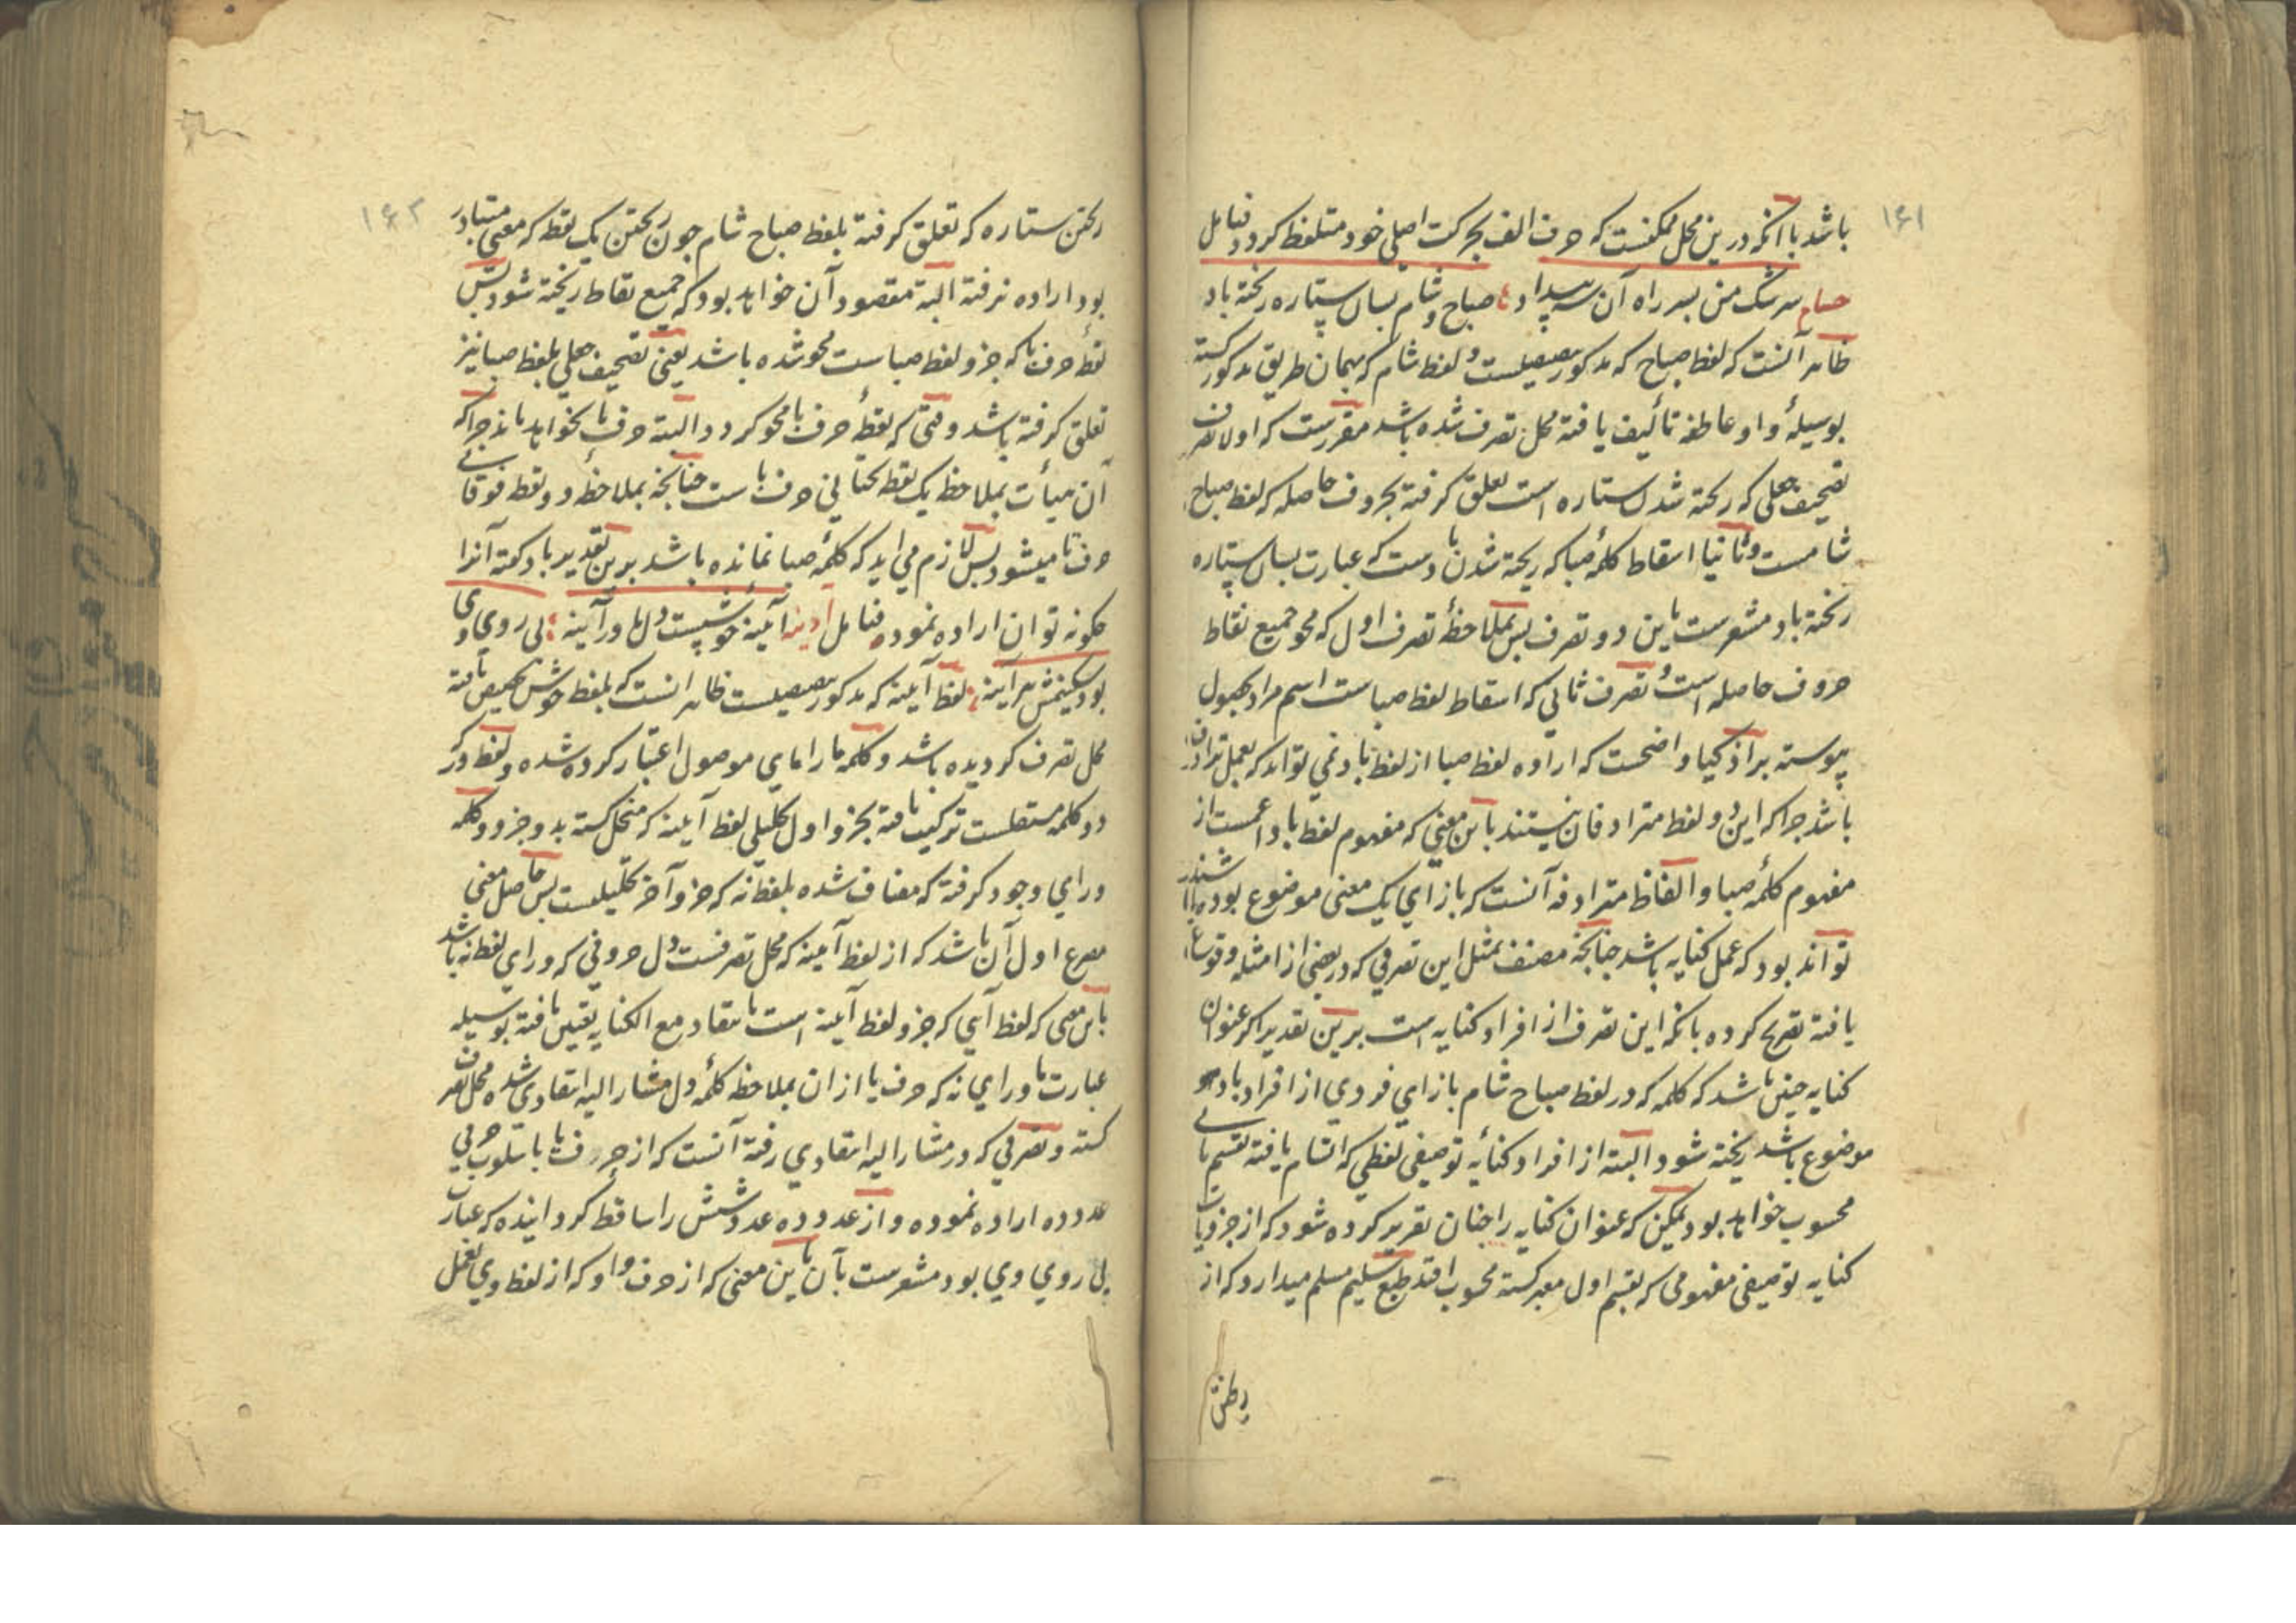 ۱۶۱
باشد با آنکه درین محل ممکنست که حرف الف بحرکت اصلی خود متلفظ کردد فتامل
حسام سرشک من بسر راه آن سهی صباح و شام بسان ستاره ریخته باد
ظاهر آنست که لفظ صباح که مذکور و لفظ شام که بهمان طریق مذکور کشته
بوسیلهٔ واو عاطفه تألیف یافته محل تصرف شده باشد مقررست که اولا تصرف
تصحیف جعلی که ریخته شدن ستاره است تعلق کرفته بحروف حاصله که لفظ صباح
شامست و ثانیا اسقاط کلمهٔ صبا که ریخته شدن بادست که عبارت بسان ستاره
ریخته باد مشعرست باین دو تصرف بس بملاحظهٔ تصرف اول که محو جمیع نقاط
حروف حاصله است و تصرف ثانی که اسقاط لفظ صباست اسم مراد بحصول
پیوسته بر اذکیا واضحست که اراده لفظ صبا از لفظ باد نمی تواند که بعمل ترادف
باشد جراکه این دو لفظ مترادفان نیستند باین معنی که مفهوم لفظ باد اعمست از
مفهوم کلمهٔ صبا و الفاظ مترادفه آنست که بازای یک معنی موضوع بوده باشند
تواند بود که عمل کنایه باشد جنانجه مصنف بمثل این تصرفی که در بعضی از امثله وقوع
یافته تصریح کرده بانکه این تصرف از افراد کنایه است برین تقدیر اکر عنوان
کنایه جنین باشد که کلمه که در لفظ صباح شام بازای فردی از افراد باد
موضوع باشد ریخته شود البته از افراد کنایهٔ توصیفی لفظی که اتسام یافته بقسم ثانی
محسوب خواهد بود ممکن که عنوان کنایه را جنان تقریر کرده شود که از جزویات
کنایه توصیفی مفهومی که بقسم اول معبر کشته محسوب افتد طبع سلیم مسلم میدارد که از
۱۶۲
ریختن ستاره که تعلق کرفته بلفظ صباح شام جون ریختن یک نقطه که معنی متبادر
بود اراده نرفته البته مقصود آن خواهد بود که جمیع نقاط ریخته شود بس
نقطهٔ حرف با که جزو لفظ صباست محو شده باشد یعنی تصحیف جعلی بلفظ صبا نیز
تعلق کرفته باشد وقتی که نقطهٔ حرف با محو کردد البته حرف با نخواهد ماند جراکه
آن هیأت بملاحظه یک نقطه تحتانی حرف باست جنانجه بملاحظهٔ دو نقطه فوقانی
حرف تا میشود بس لازم می اید که کلمهٔ صبا نمانده باشد برین تقدیر باد کفته آنرا
جکونه توان اراده نمود فتامل آدینه آئینهٔ خوشیست دل ما ور آینه بی روی وی
بود لفظ آینه که مذکور ظاهر انست که بلفظ خوش تخصیص یافته
محل تصرف کردیده باشد و کلمه ما را مای موصول اعتبار کرده شده و لفظ ور که
دو کلمه مستقلست ترکیب یافته بجزو اول تحلیلی لفظ آینه که منحل کشته بدو جزو و کلمه
ورای وجود کرفته که مضاف شده بلفظ نه که جزو آخر تحلیلست بس حاصل معنی
مصرع اول آن باشد که از لفظ آینه که محل تصرفست دل حروفی که ورای لفظ نه باشد
باین معنی که لفظ آیی که جزو لفظ آینه است بانتقاد مع الکنایه تعیین یافته بوسیله
عبارت ما ورای نه که حرف یا ازان بملاحظه کلمهٔ دل مشار الیه انتقادی شده محل تصرف
کشته و تصرفی که در مشار الیه انتقادی رفته آنست که از حرف یا باسلوب حرفی
عدد ده اراده نموده و از عدد ده عدد شش را ساقط کردانیده که عبارت
بی روی وی بود مشعرست بآن باین معنی که از حرف واو که از لفظ وی بعمل